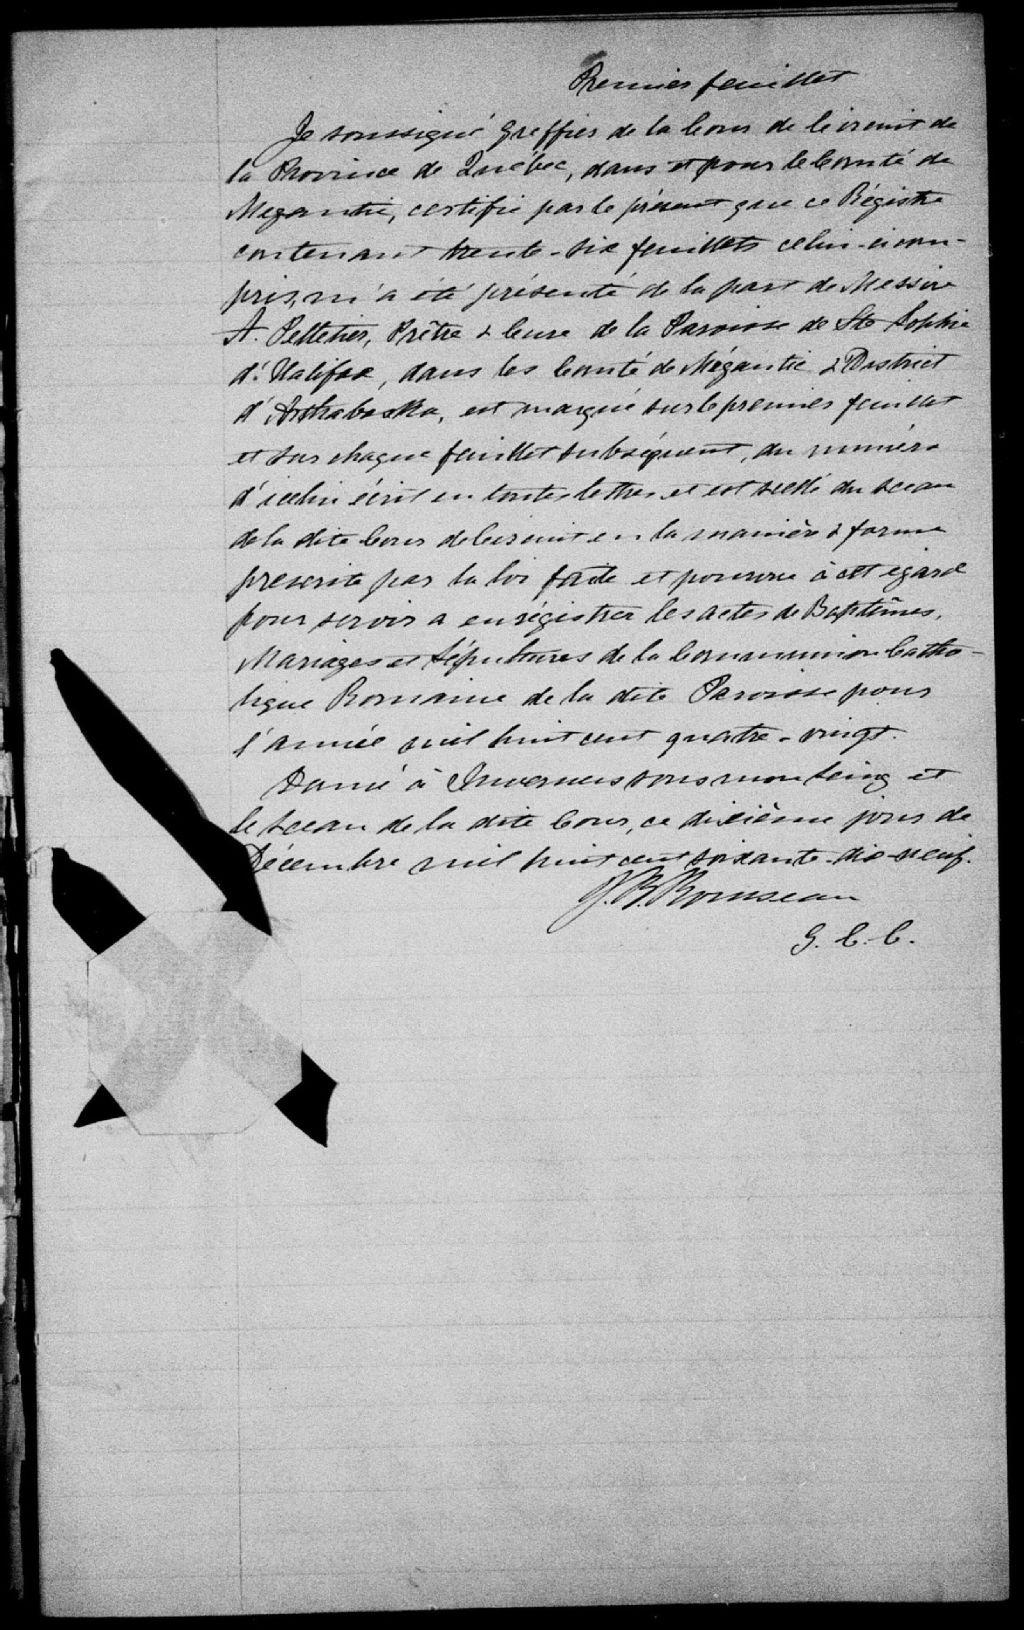 Premier feuillet
Je soussigné Greffier de la Cour de Circuit de
la Province de Québec, dans et pour le Comté de
Megantic, certifie par le présent que ce Régistre
contenant trente-six feuillets celui-ci com-
pris, m'a été présenté de la part de Messire
A. Pelletier, Prêtre & Cure de la Paroisse de Ste Sophie
d'Halifax, dans les Comté de Mégantic & District
d'Arthabaska, est marqué sur le premier feuillet
et sur chaque feuillet subséquent, du numéro
d'icelui écrit en toutes lettres et est scellé du sceau
de la dite Cour de Circuit en la manière & forme
prescrite par la loi faite et pourvue à cet égard
pour servir a enrégistrer les actes de Baptêmes,
Mariages et Sépultures de la Communion Catho-
lique Romaine de la dite Paroisse pour
l'année mil huit cent quatre-vingt.
Donné à Inverness sous mon seing et
le sceau de la dite Cour, ce dixième jour de
Décembre mil huit cent soixante-dix-neuf.
J. B. Rousseau
G. C. C.